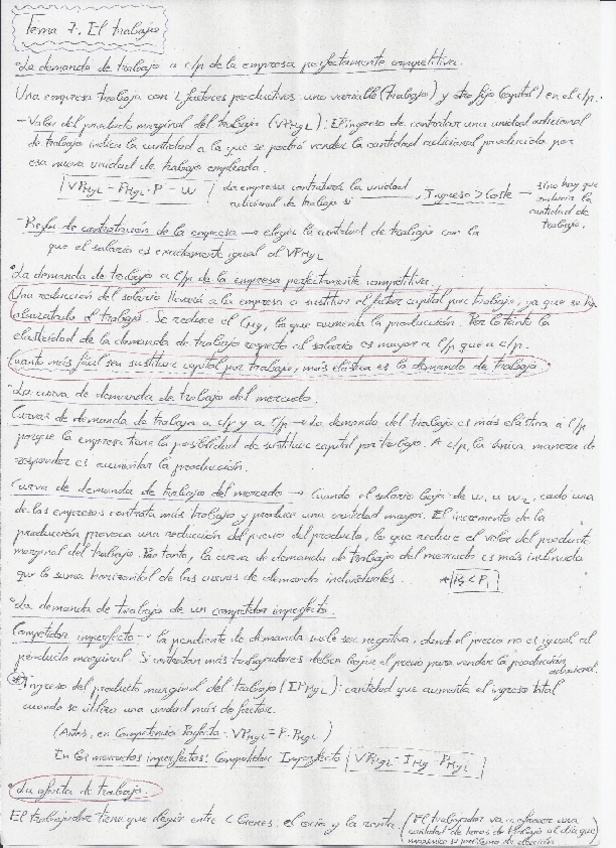 Tema 7. El trabajo
°La demanda de trabajo a c/p de la empresa perfectamente competitiva.
Una empresa trabaja con 2 factores productivos: uno variable (trabajo) y otro fijo (capital) en el c/p.
- Valor del producto marginal del trabajo (VPMgL): El ingreso de contratar una unidad adicional
de trabajo indica la cantidad a la que se podrá vender la cantidad adicional producida por
esa nueva unidad de trabajo empleada.
VPMgL = PMgL · P = W → La empresa contratará la unidad adicional de trabajo si → Ingreso > Coste → sino hay que reducir la cantidad de trabajo.
- Regla de contratación de la empresa → elegir la cantidad de trabajo con la
que el salario es exactamente igual al VPMgL
°La demanda de trabajo a l/p de la empresa perfectamente competitiva.
Una reducción del salario llevará a la empresa a sustituir el factor capital por trabajo, ya que se ha
abaratado el trabajo. Se reduce el CMg, lo que aumenta la producción. Por lo tanto la
elasticidad de la demanda de trabajo respecto al salario es mayor a l/p que a c/p.
Cuanto más fácil sea sustituir capital por trabajo, más elástica es la demanda de trabajo
°La curva de demanda de trabajo del mercado.
Curvas de demanda de trabajo a c/p y a l/p → La demanda del trabajo es más elástica a l/p
porque la empresa tiene la posibilidad de sustituir capital por trabajo. A c/p, la única manera de
responder es aumentar la producción.
Curva de demanda de trabajo del mercado → Cuando el salario baja de w1 a w2, cada una
de las empresas contrata más trabajo y produce una cantidad mayor. El incremento de la
producción provoca una reducción del precio del producto, lo que reduce el valor del producto
marginal del trabajo. Por tanto, la curva de demanda de trabajo del mercado es más inclinada
que la suma horizontal de las curvas de demanda individuales... * P2 < P1
°La demanda de trabajo de un competidor imperfecto.
Competidor imperfecto → la pendiente de demanda suele ser negativa, el precio no es igual al
producto marginal. Si contratan más trabajadores deben bajar el precio para vender la producción adicional.
* Ingreso del producto marginal del trabajo (IPMgL): cantidad que aumenta el ingreso total
cuando se utiliza una unidad más de factor.
(Antes, en Competencia Perfecta: VPMgL = P · PMgL)
En los mercados imperfectos: Competidor Imperfecto VPMgL = IMg · PMgL
°La oferta de trabajo.
El trabajador tiene que elegir entre 2 bienes: el ocio y la renta (El trabajador va a ofrecer una cantidad de horas de trabajo al día que